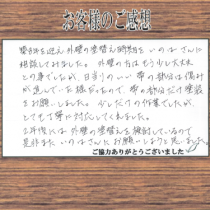 お客様のご感想
築8年を迎え外壁の塗替え時期を いのはさんに
相談してみました。外壁の方はもう少し大丈夫
との事でしたが、日当りのいい 帯の部分は傷み
が進んでいた様だったので、帯の部分だけ塗装
をお願いしました。少しだけの作業でしたが、
とても丁寧に対応してくれました。
2年後には 外壁の塗替えを検討しているので
是非またいのはさんにお願いしようと思います。
ご協力ありがとうございました